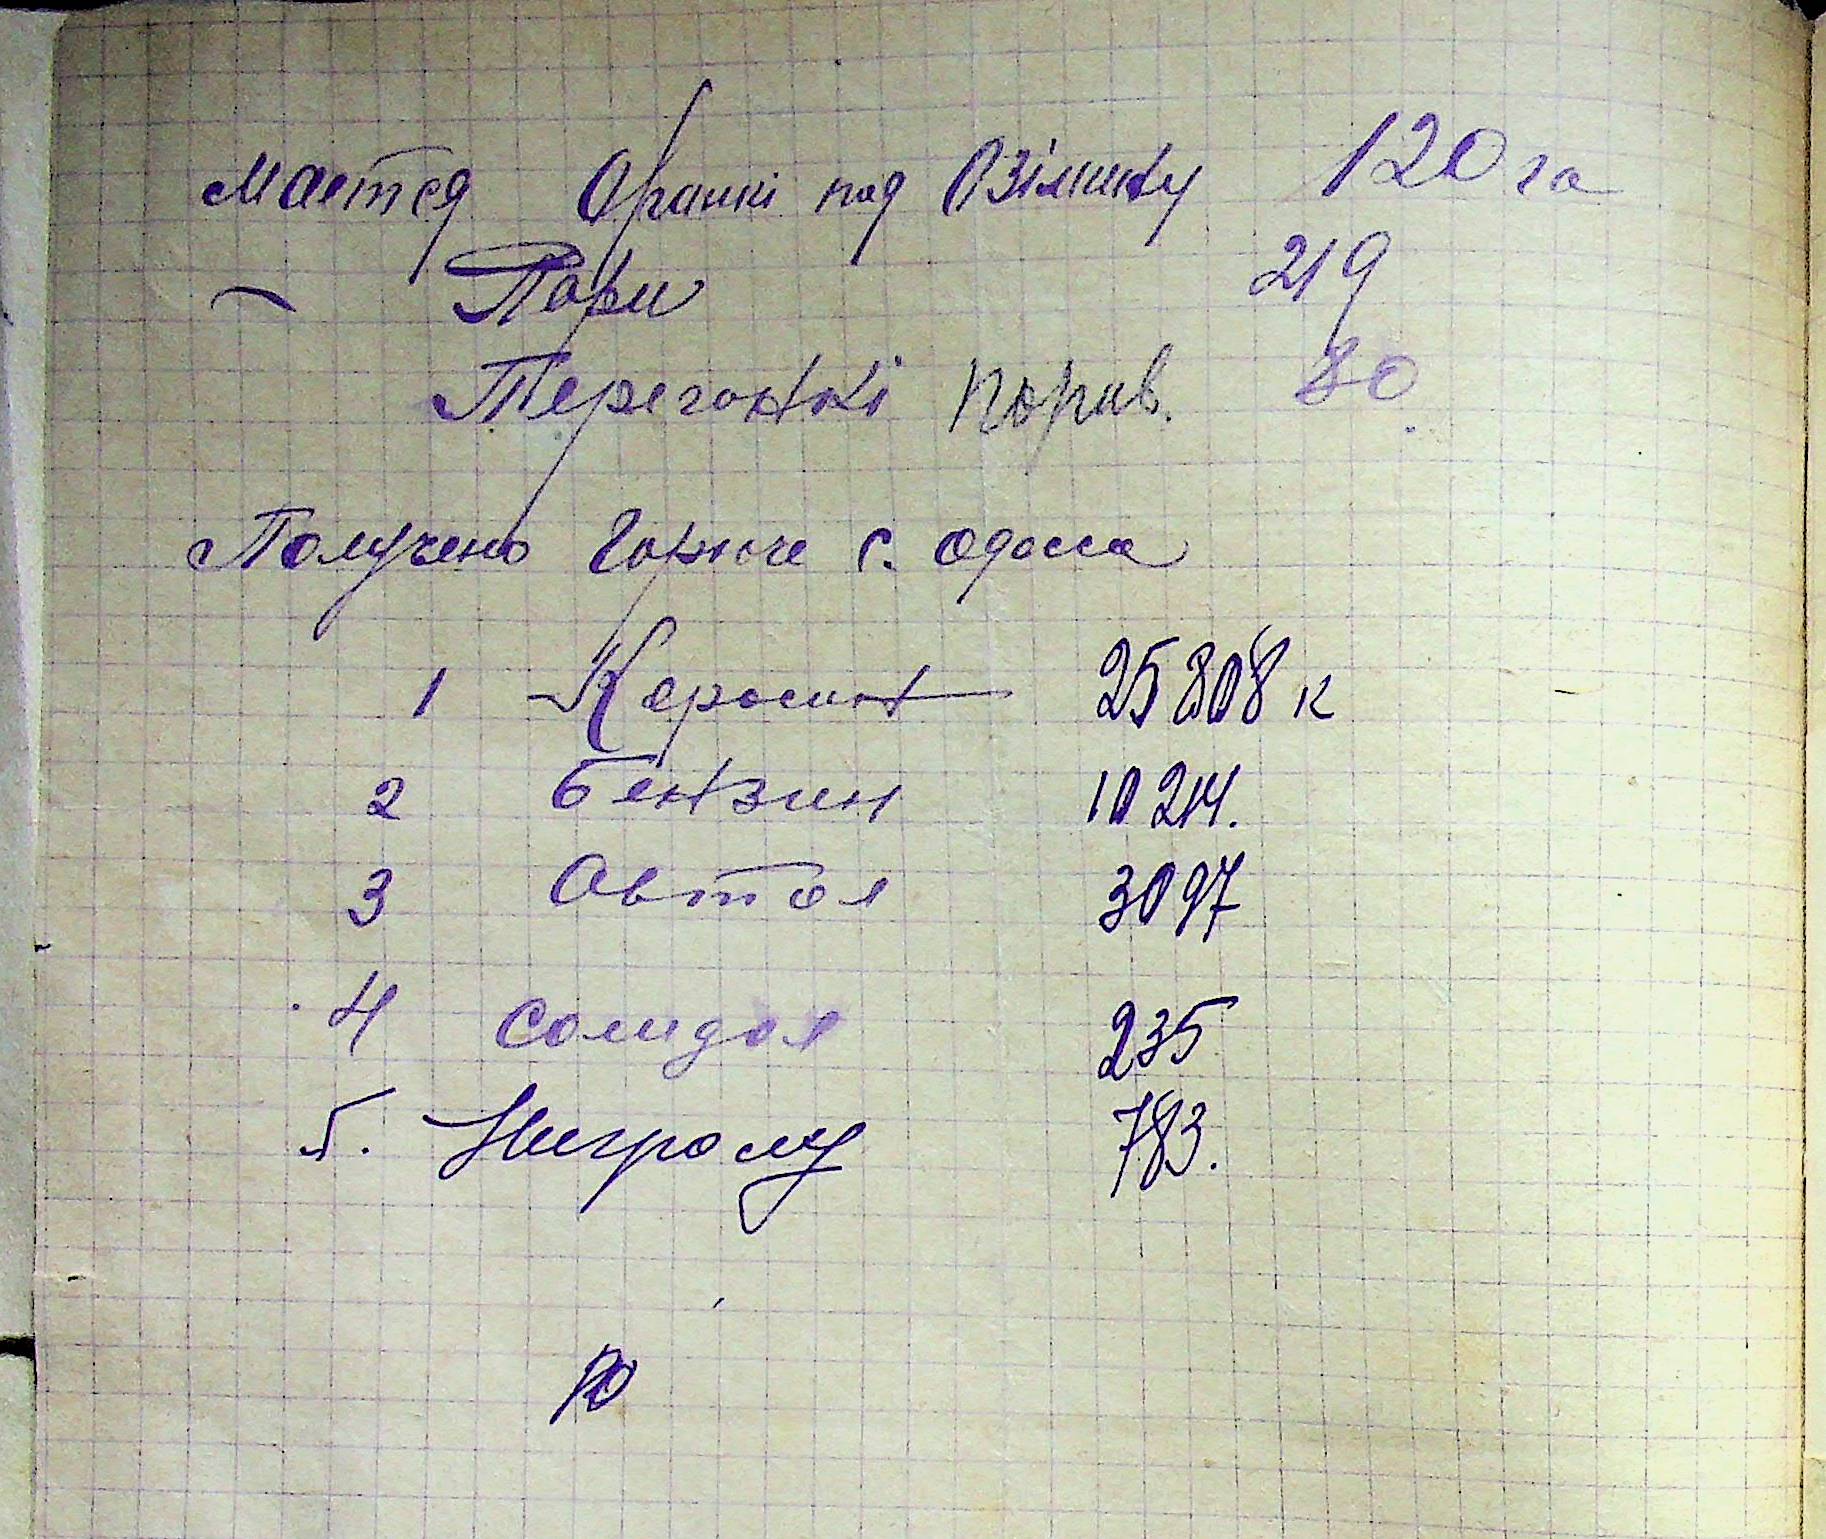 Маетсд Оранкі под Озімину 120 га
— Пари 219
Перегонкі порив. 80.
Получено Горюче с. Одесса
1 Керосин 25808 к
2 Бензин 10214.
3 Автол 3097
4 Солидол 235
5. Нигролу 783.